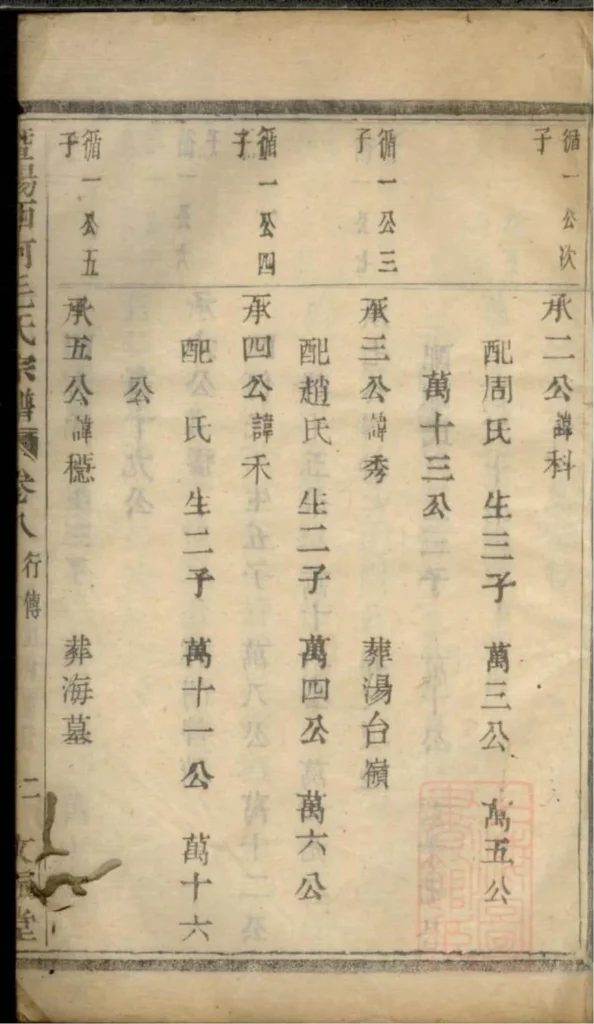 循一公次
子
承二公諱科
配周氏 生三子 萬三公 萬五公
萬十三公
循一公三
子
承三公諱秀 葬湯台嶺
配趙氏 生二子 萬四公 萬六公
循一公四
子
承四公諱禾
配氏 生二子 萬十一公 萬十六
公
循一公五
子
承五公諱穩 葬海墓
暨陽西河毛氏宗譜 卷八 行傳 二